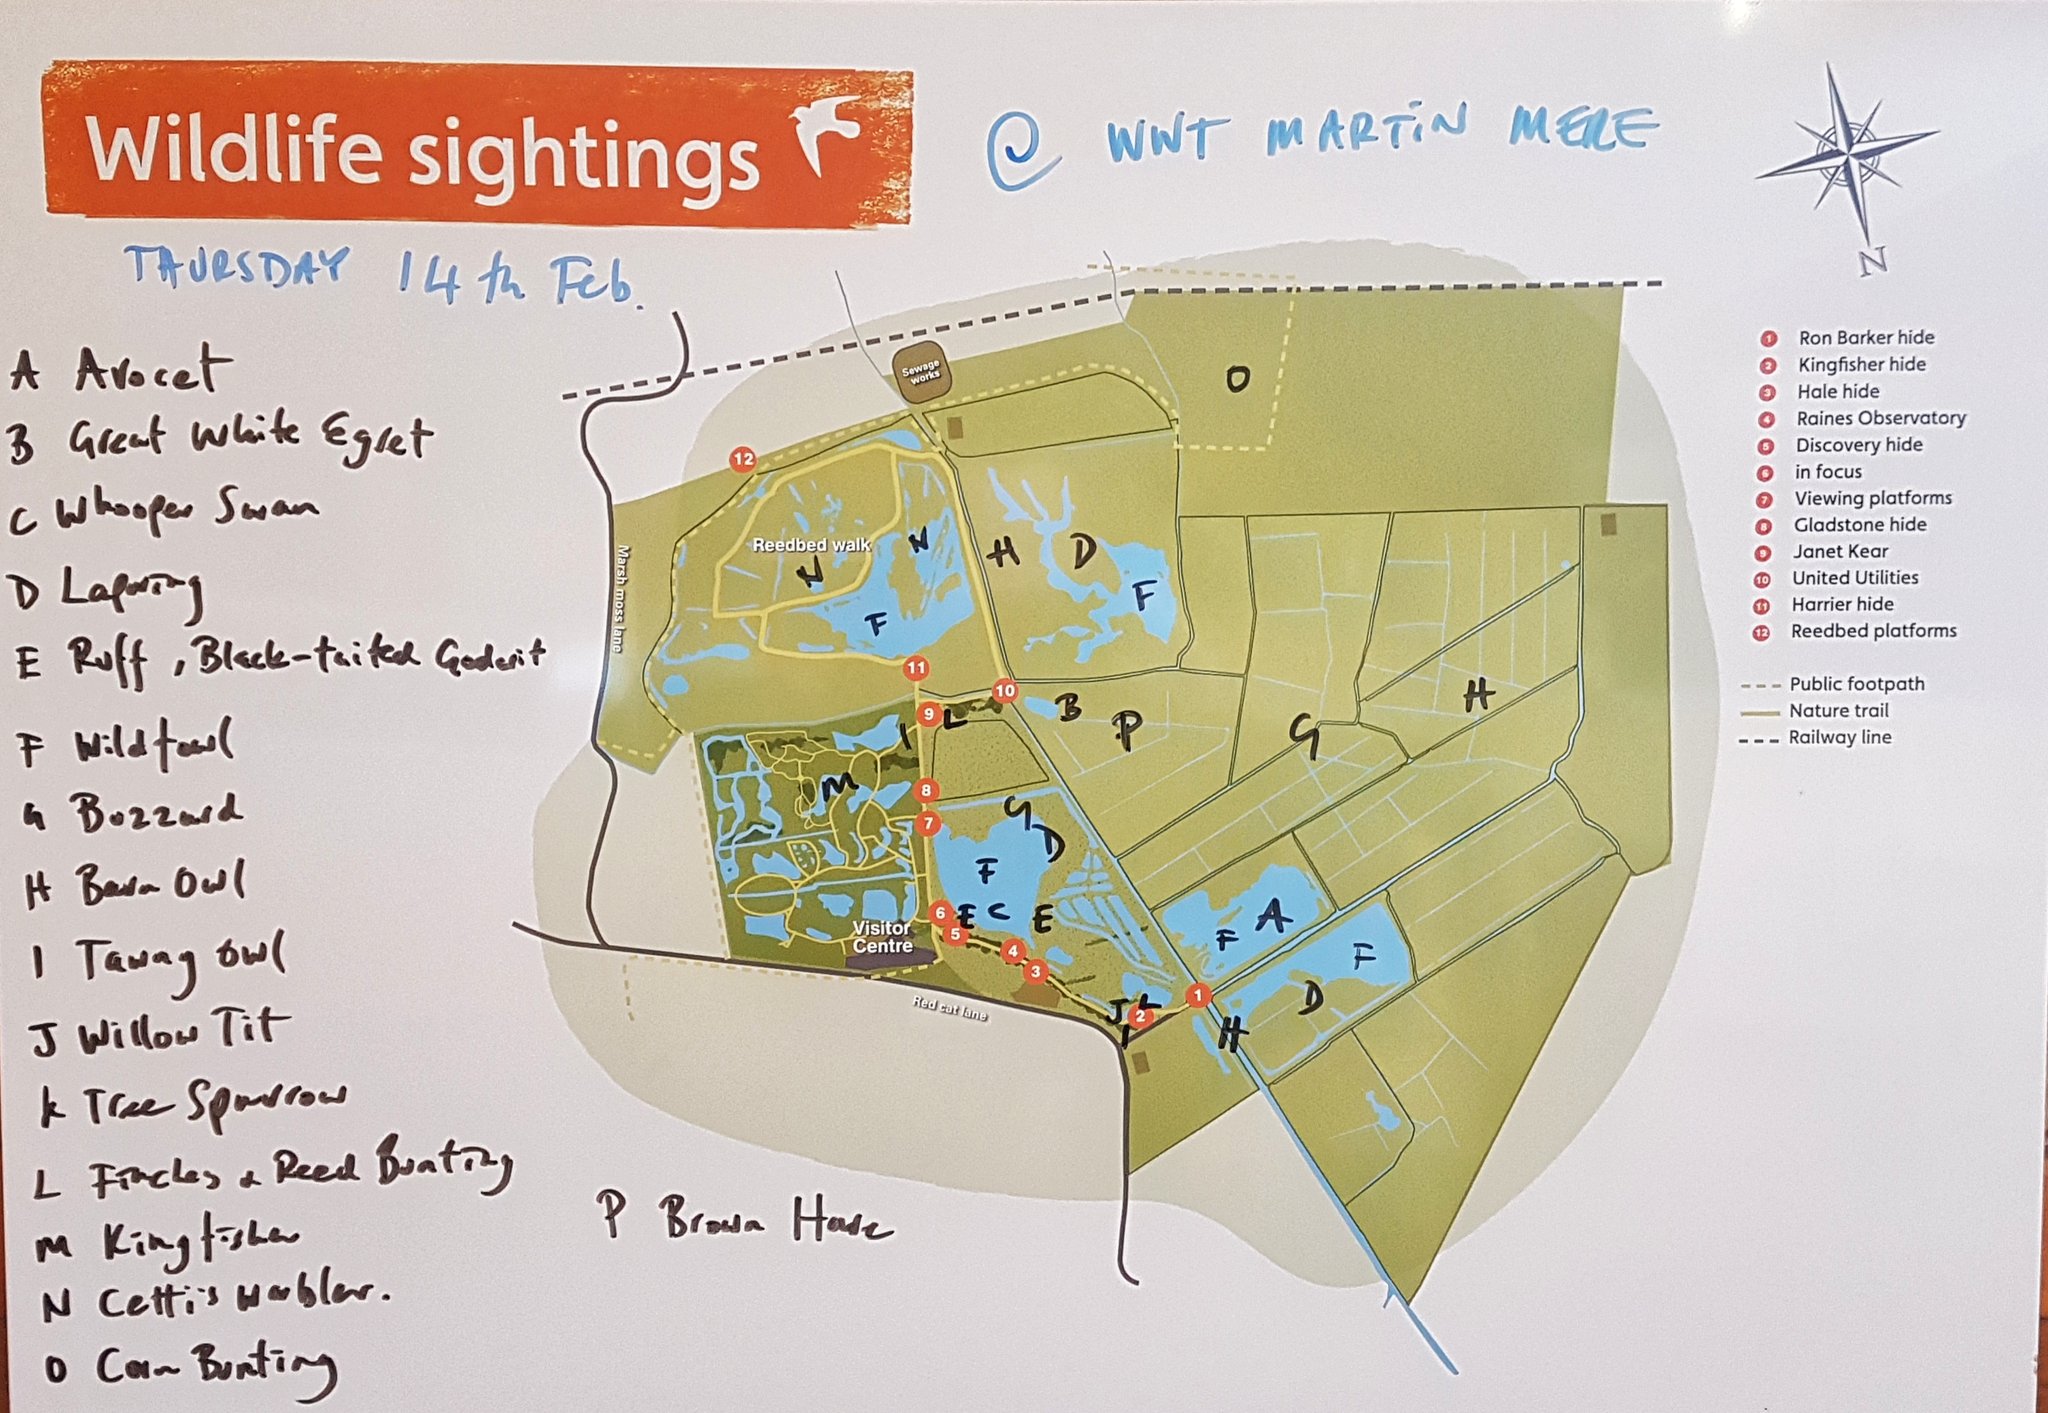 Wildlife sightings
@ WWT MARTIN MERE
THURSDAY 14th Feb.
N
A Avocet
B Great White Egret
C Whooper Swan
D Lapwing
E Ruff, Black-tailed Godwit
F Wildfowl
G Buzzard
H Barn Owl
I Tawny Owl
J Willow Tit
K Tree Sparrow
L Finches & Reed Bunting
M Kingfisher
N Cetti's Warbler.
O Corn Bunting
P Brown Hare
1 Ron Barker hide
2 Kingfisher hide
3 Hale hide
4 Raines Observatory
5 Discovery hide
6 in focus
7 Viewing platforms
8 Gladstone hide
9 Janet Kear
10 United Utilities
11 Harrier hide
12 Reedbed platforms
Public footpath
Nature trail
Railway line
Sewage
works
O
12
Reedbed walk
N
N
H
D
F
F
Marsh moss lane
11
10
9
L
B
P
G
H
I
M
8
7
G
D
F
6
E
C
E
A
F
F
Visitor
Centre
5
4
3
D
1
J
K
2
I
H
Red cat lane